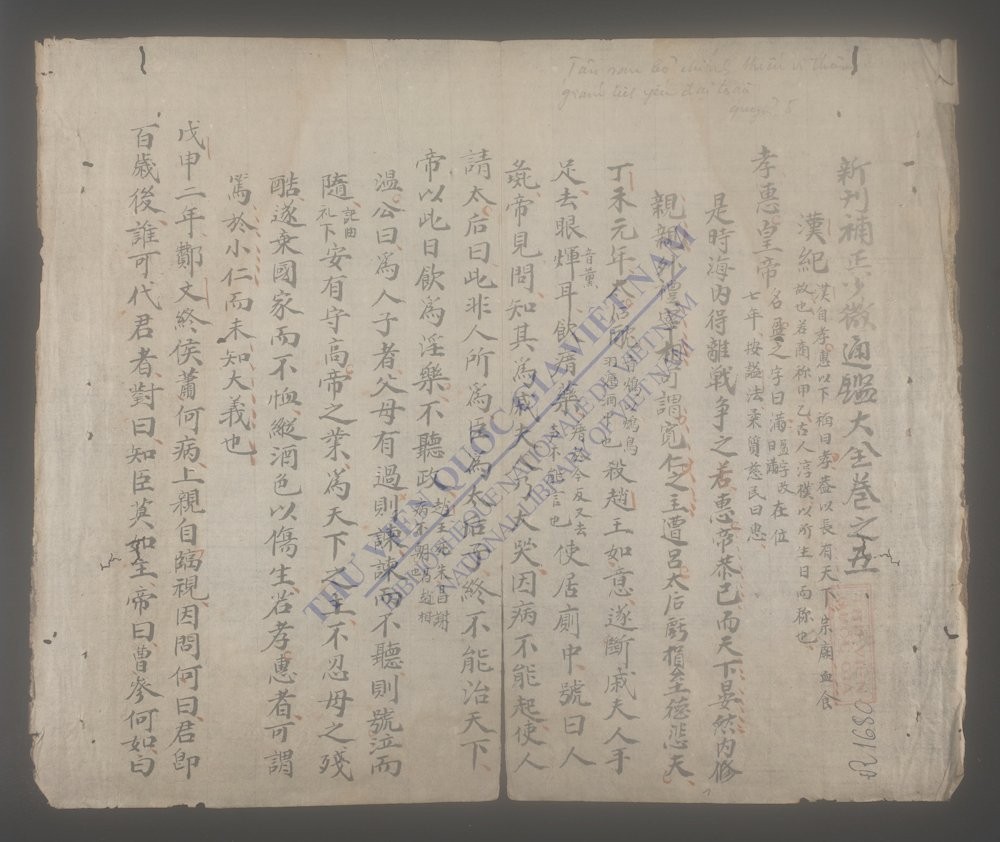 新刊補正少微通鑑大全卷之五
漢紀 漢自孝惠以下祢曰孝盖以長有天下宗廟血食
故也若商称甲乙古人淳樸以所生日而称也
孝惠皇帝 名盈之字曰滿
七年按諡法柔質慈民曰惠
是時海内得離戰爭之若惠帝恭己而天下晏然内修
親親外禮宰相可謂寬仁之主遭呂太后虧損至德悲夫
丁未元年太后酖 殺趙王如意遂斷戚夫人手
足去眼煇耳飲瘖藥 使居廁中號曰人
彘帝見問知其爲戚夫人乃大哭因病不能起使人
請太后曰此非人所爲臣為太后子終不能治天下
帝以此日飲爲淫樂不聽政
温公曰爲人子者父母有過則諫諫而不聽則號泣而
隨 記曲礼下 安有守高帝之業爲天下之主不忍母之殘
酷遂棄國家而不恤縱酒色以傷生若孝惠者可謂
篤於小仁而未知大義也
戊申二年酇文終侯蕭何病上親自臨視因問何曰君卽
百歲後誰可代君者對曰知臣莫如主帝曰曹參何如曰
R.1680
THƯ VIỆN QUỐC GIA VIỆT NAM
BIBLIOTHEQUE NATIONALE DU VIETNAM
NATIONAL LIBRARY OF VIETNAM